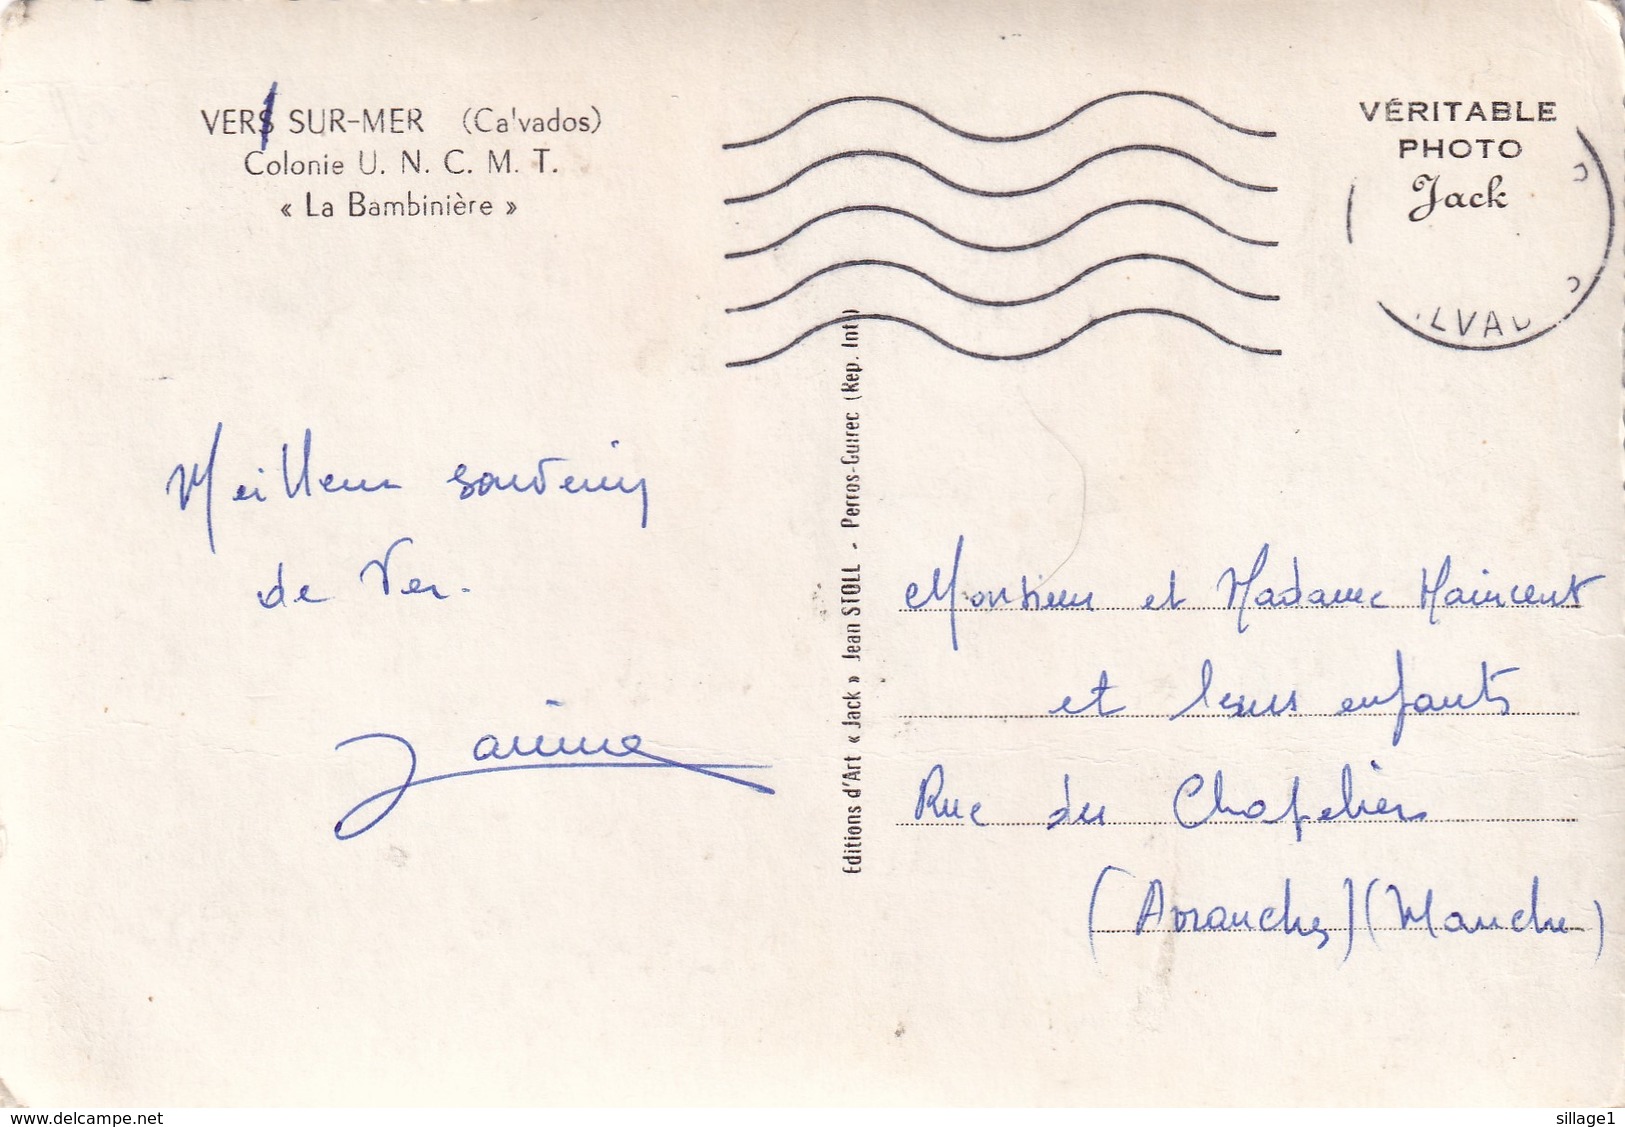 VERS SUR-MER (Ca'vados)
Colonie U. N. C. M. T.
« La Bambinière »
VÉRITABLE
PHOTO
Jack
LVAD
Meilleurs souvenirs
de Ver.
Janine
Editions d'Art « Jack » Jean STOLL - Perros-Guirec (Rep. Int)
Monsieur et Madame Maincent
et leurs enfants
Rue des Chapeliers
(Avranches) (Manche)
www.delcampe.net
sillage1